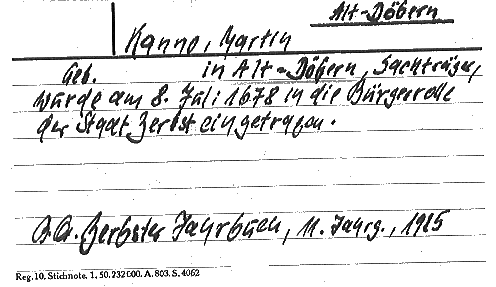 Alt-Döbern
Hanno, Martin
Geb. in Alt-Döbern, Sackträger,
wurde am 8. Juli 1678 in die Bürgerrolle
der Stadt Zerbst eingetragen.
Zerbster Jahrbuch, 11. Jahrg., 1925
Reg. 10. Stichnote. 1. 50. 232 000. A. 803. S. 4062